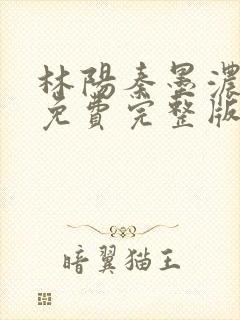 林陽秦墨濃
免費完整版
暗翼猫王